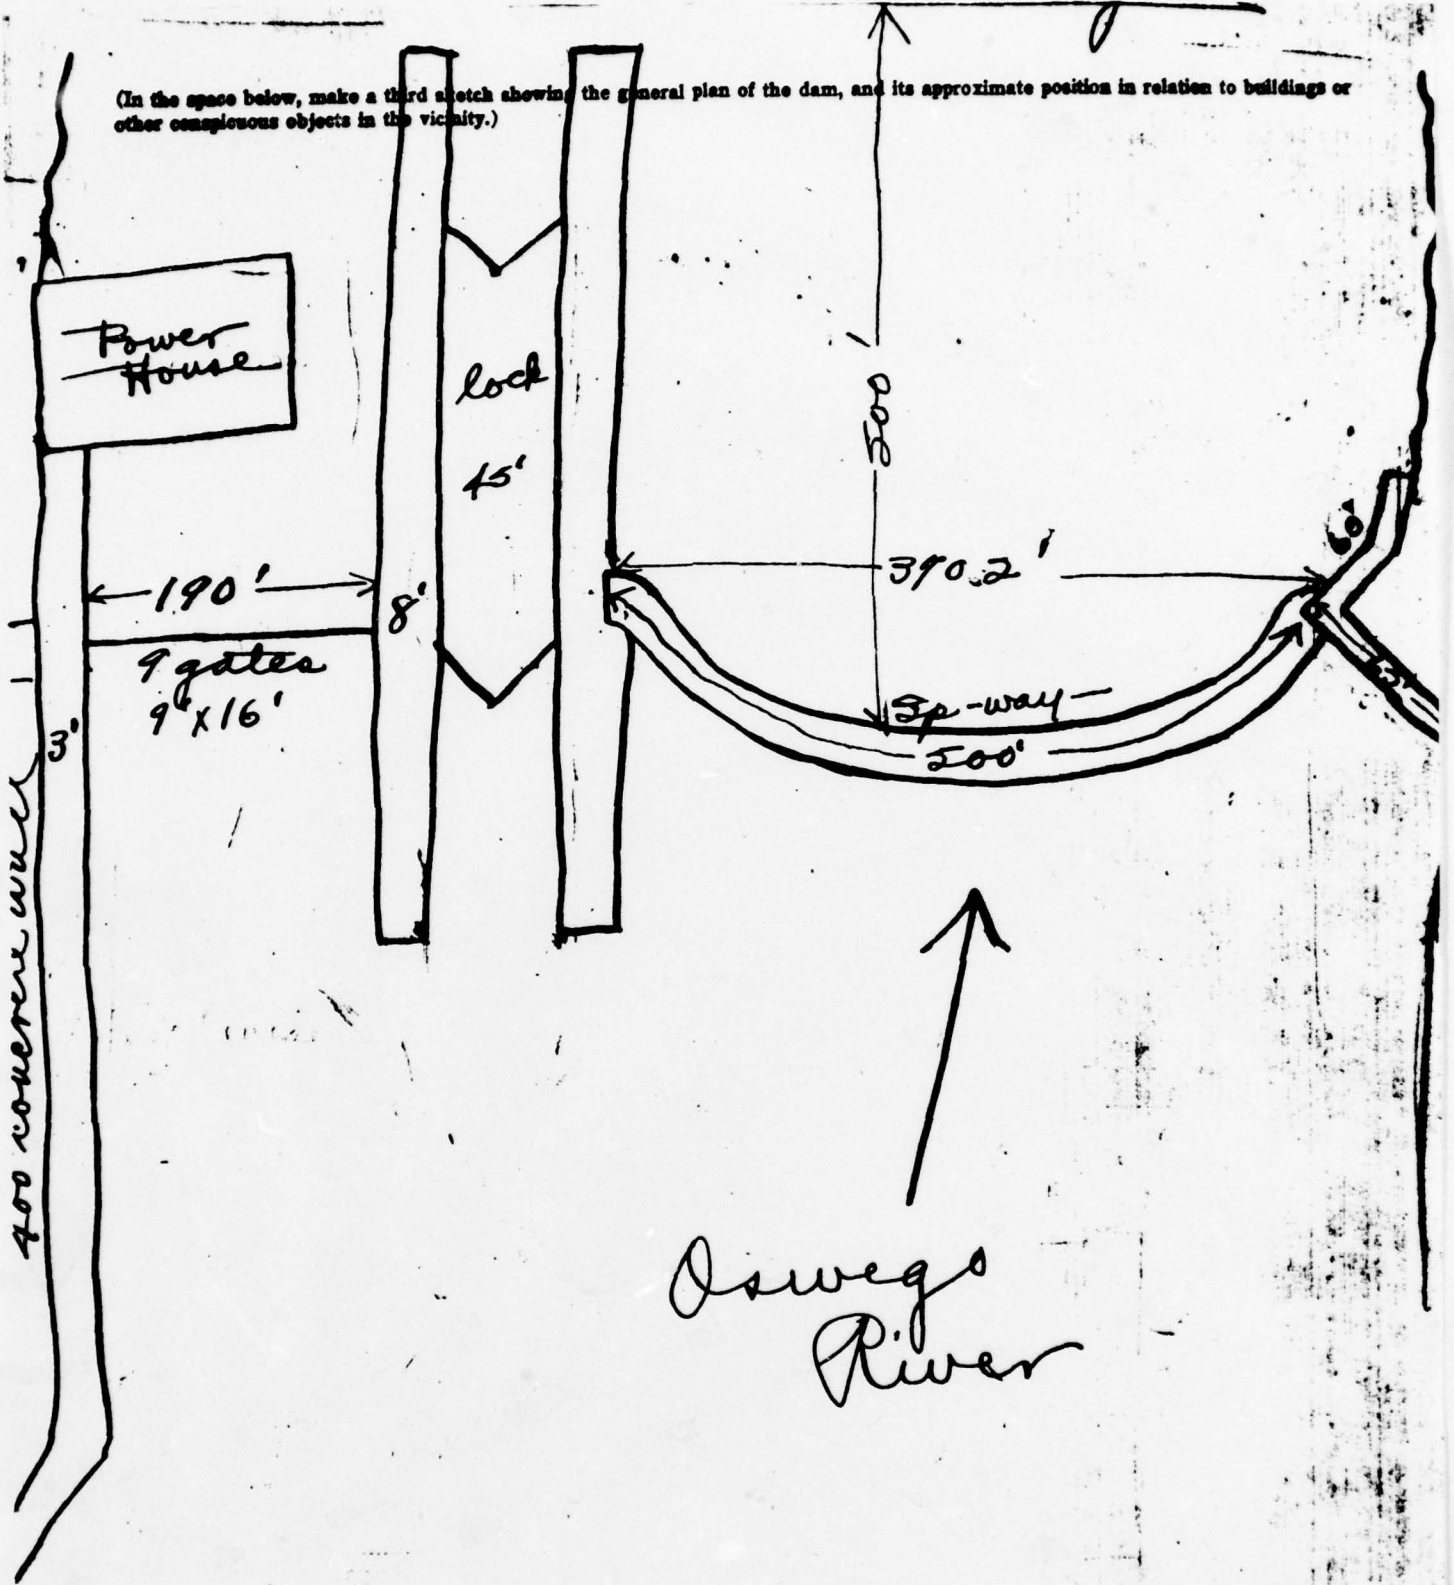 (In the space below, make a third sketch showing the general plan of the dam, and its approximate position in relation to buildings or
other conspicuous objects in the vicinity.)
Power
House
lock
45'
500'
60'
390.2'
190'
8'
9 gates
9' x 16'
3'
Sp-way
500'
400 concrete wall
Oswego
River